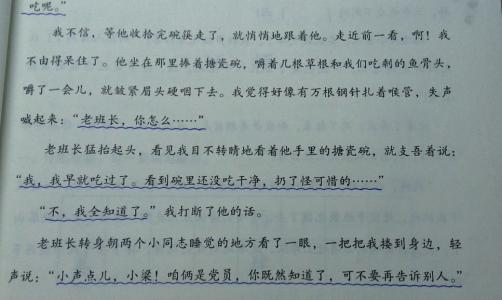 吃呢。”
我不信，等他收拾完碗筷走了，就悄悄地跟着他。走近前一看，啊！我
不由得呆住了。他坐在那里捧着搪瓷碗，嚼着几根草根和我们吃剩的鱼骨头，
嚼了一会儿，就皱紧眉头硬咽下去。我觉得好像有万根钢针扎着喉管，失声
喊起来：“老班长，你怎么……”
老班长猛抬起头，看见我目不转睛地看着他手里的搪瓷碗，就支吾着说：
“我，我早就吃过了。看到碗里还没吃干净，扔了怪可惜的……”
“不，我全知道了。”我打断了他的话。
老班长转身朝两个小同志睡觉的地方看了一眼，一把把我搂到身边，轻
声说：“小声点儿，小梁！咱俩是党员，你既然知道了，可不要再告诉别人。”